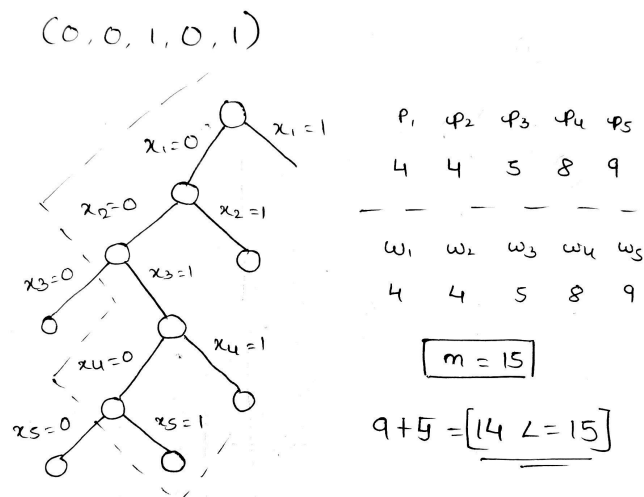 (0, 0, 1, 0, 1)
x₁=0 x₁=1
x₂=0 x₂=1
x₃=0 x₃=1
x₄=0 x₄=1
x₅=0 x₅=1
P₁ P₂ P₃ P₄ P₅
4 4 5 8 9
w₁ w₂ w₃ w₄ w₅
4 4 5 8 9
m = 15
9+5 = [14 <= 15]